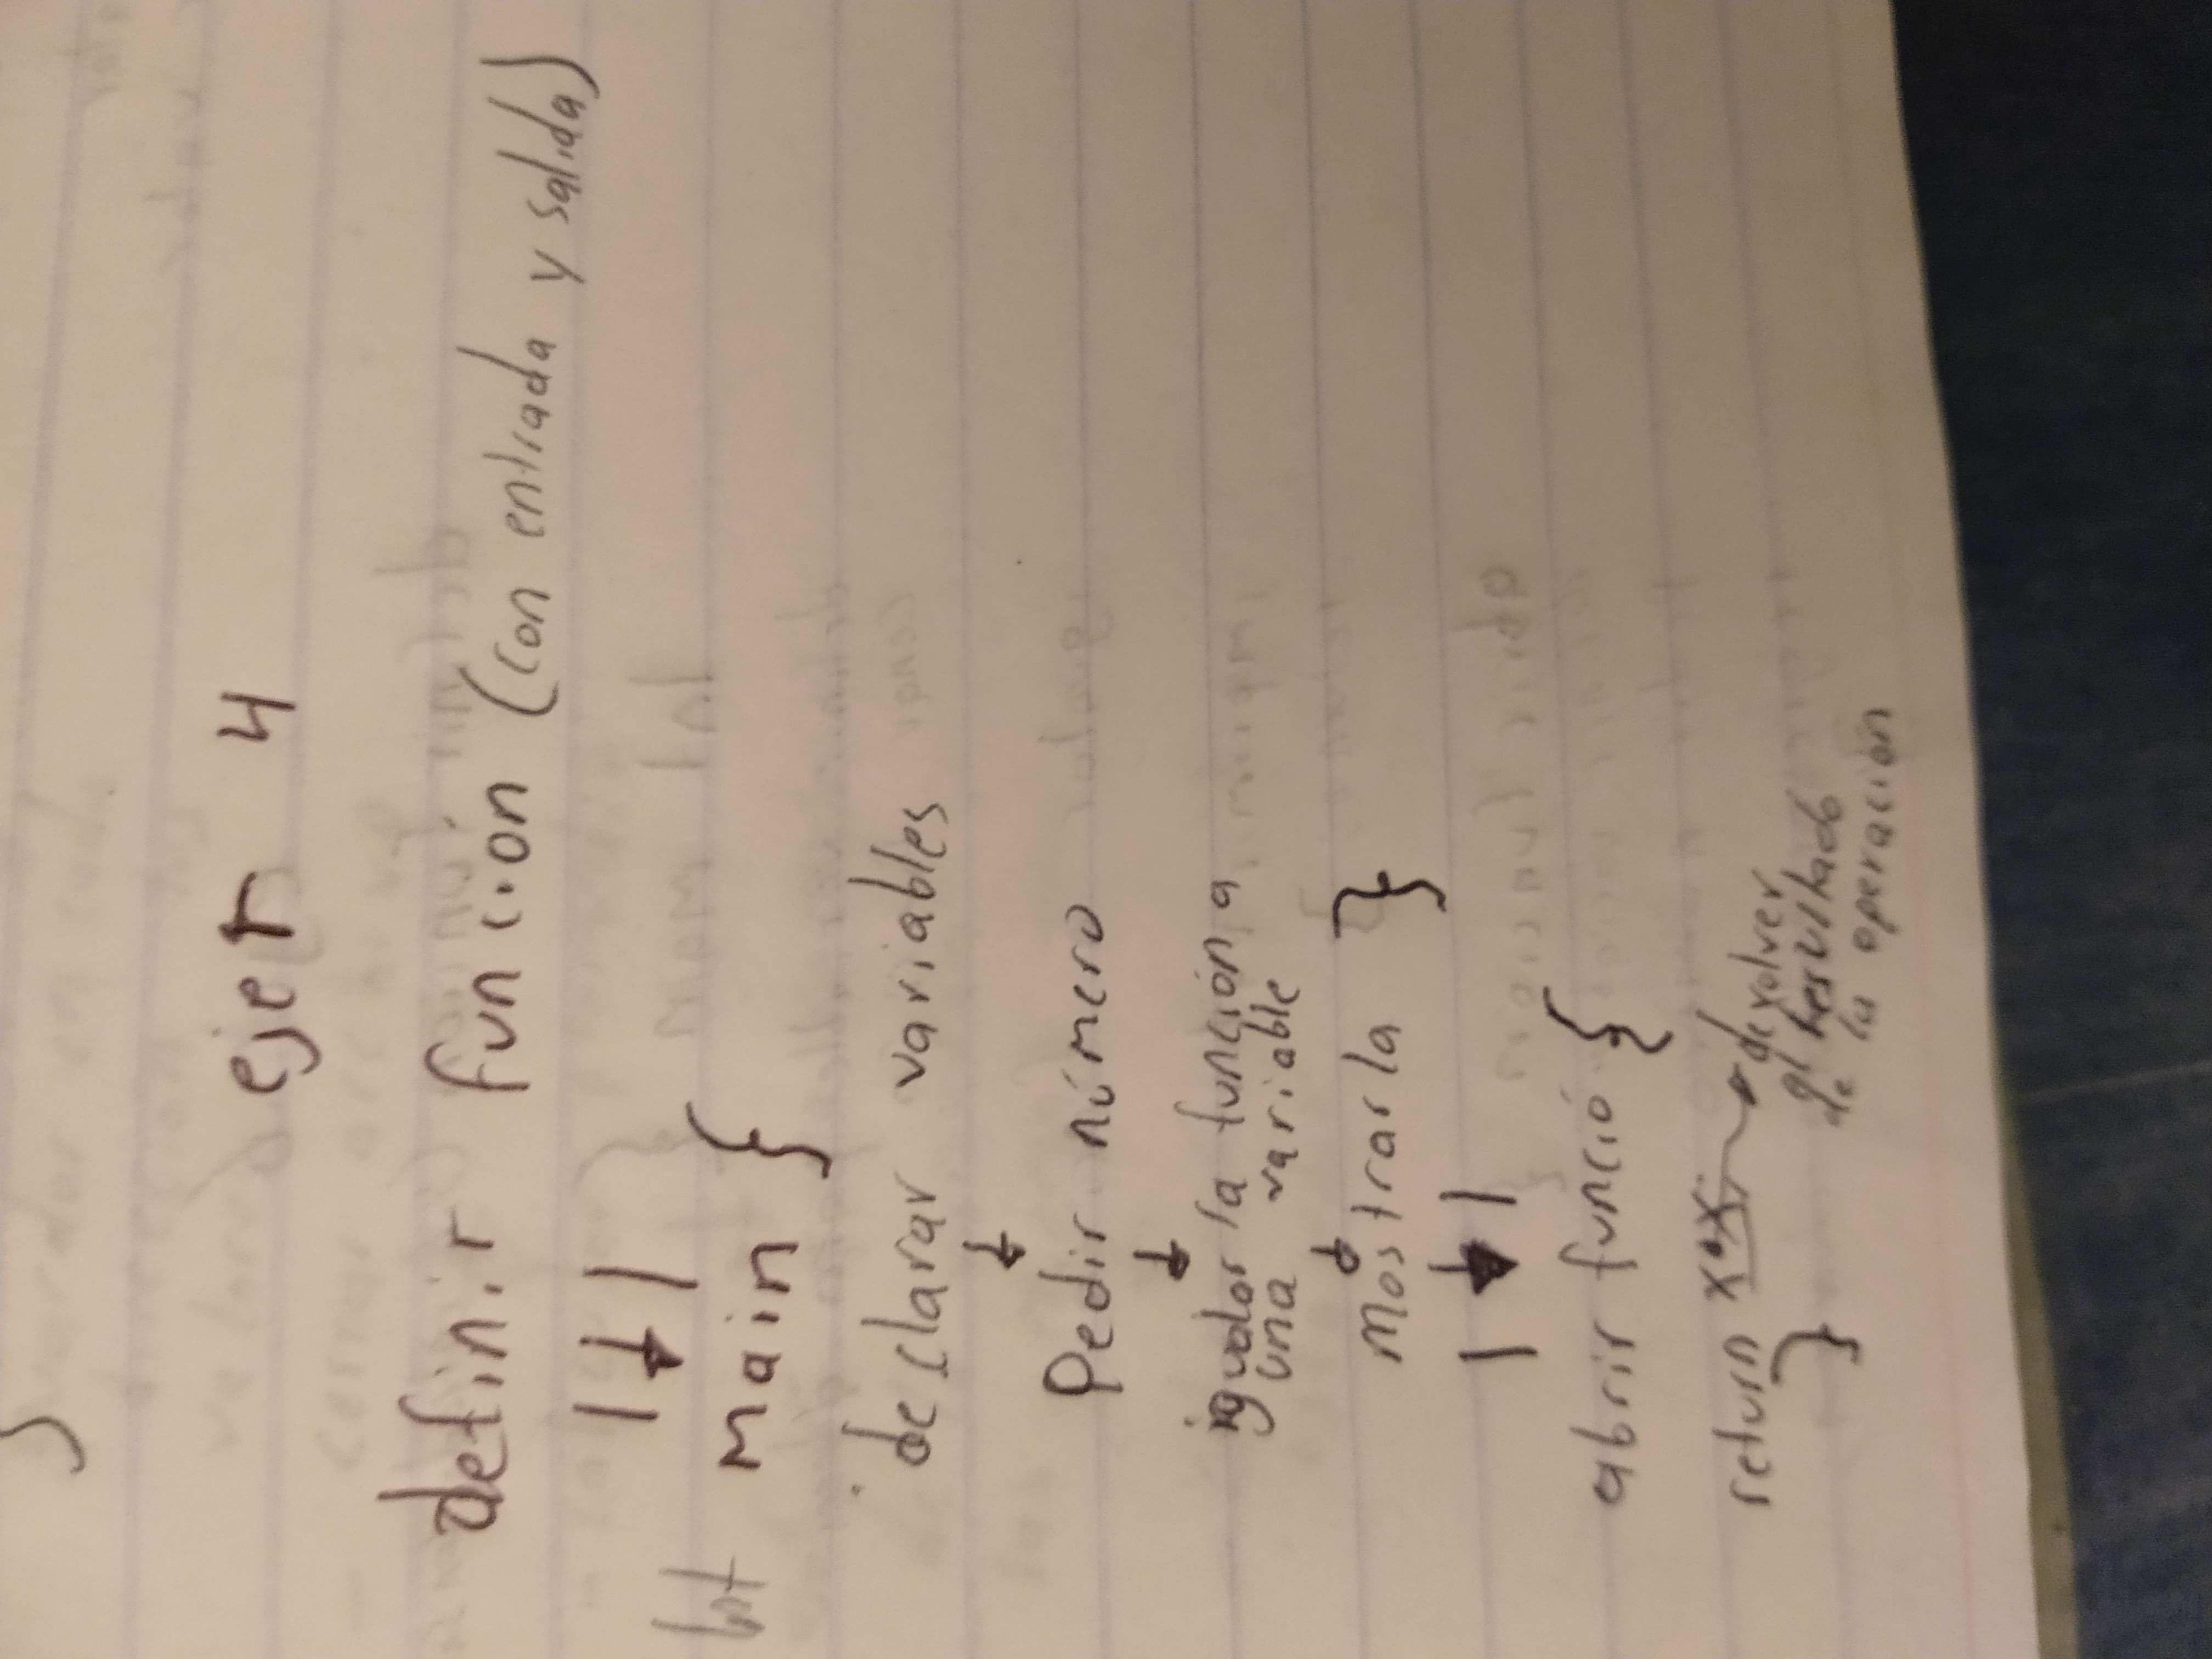 }
ejer 4
definir función (con entrada y salida)
Int main {
declarar variables
Pedir número
igualar la función a
una variable
mostrarla }
abrir funció {
return x•x; devolver
el resultado
de la operación
}